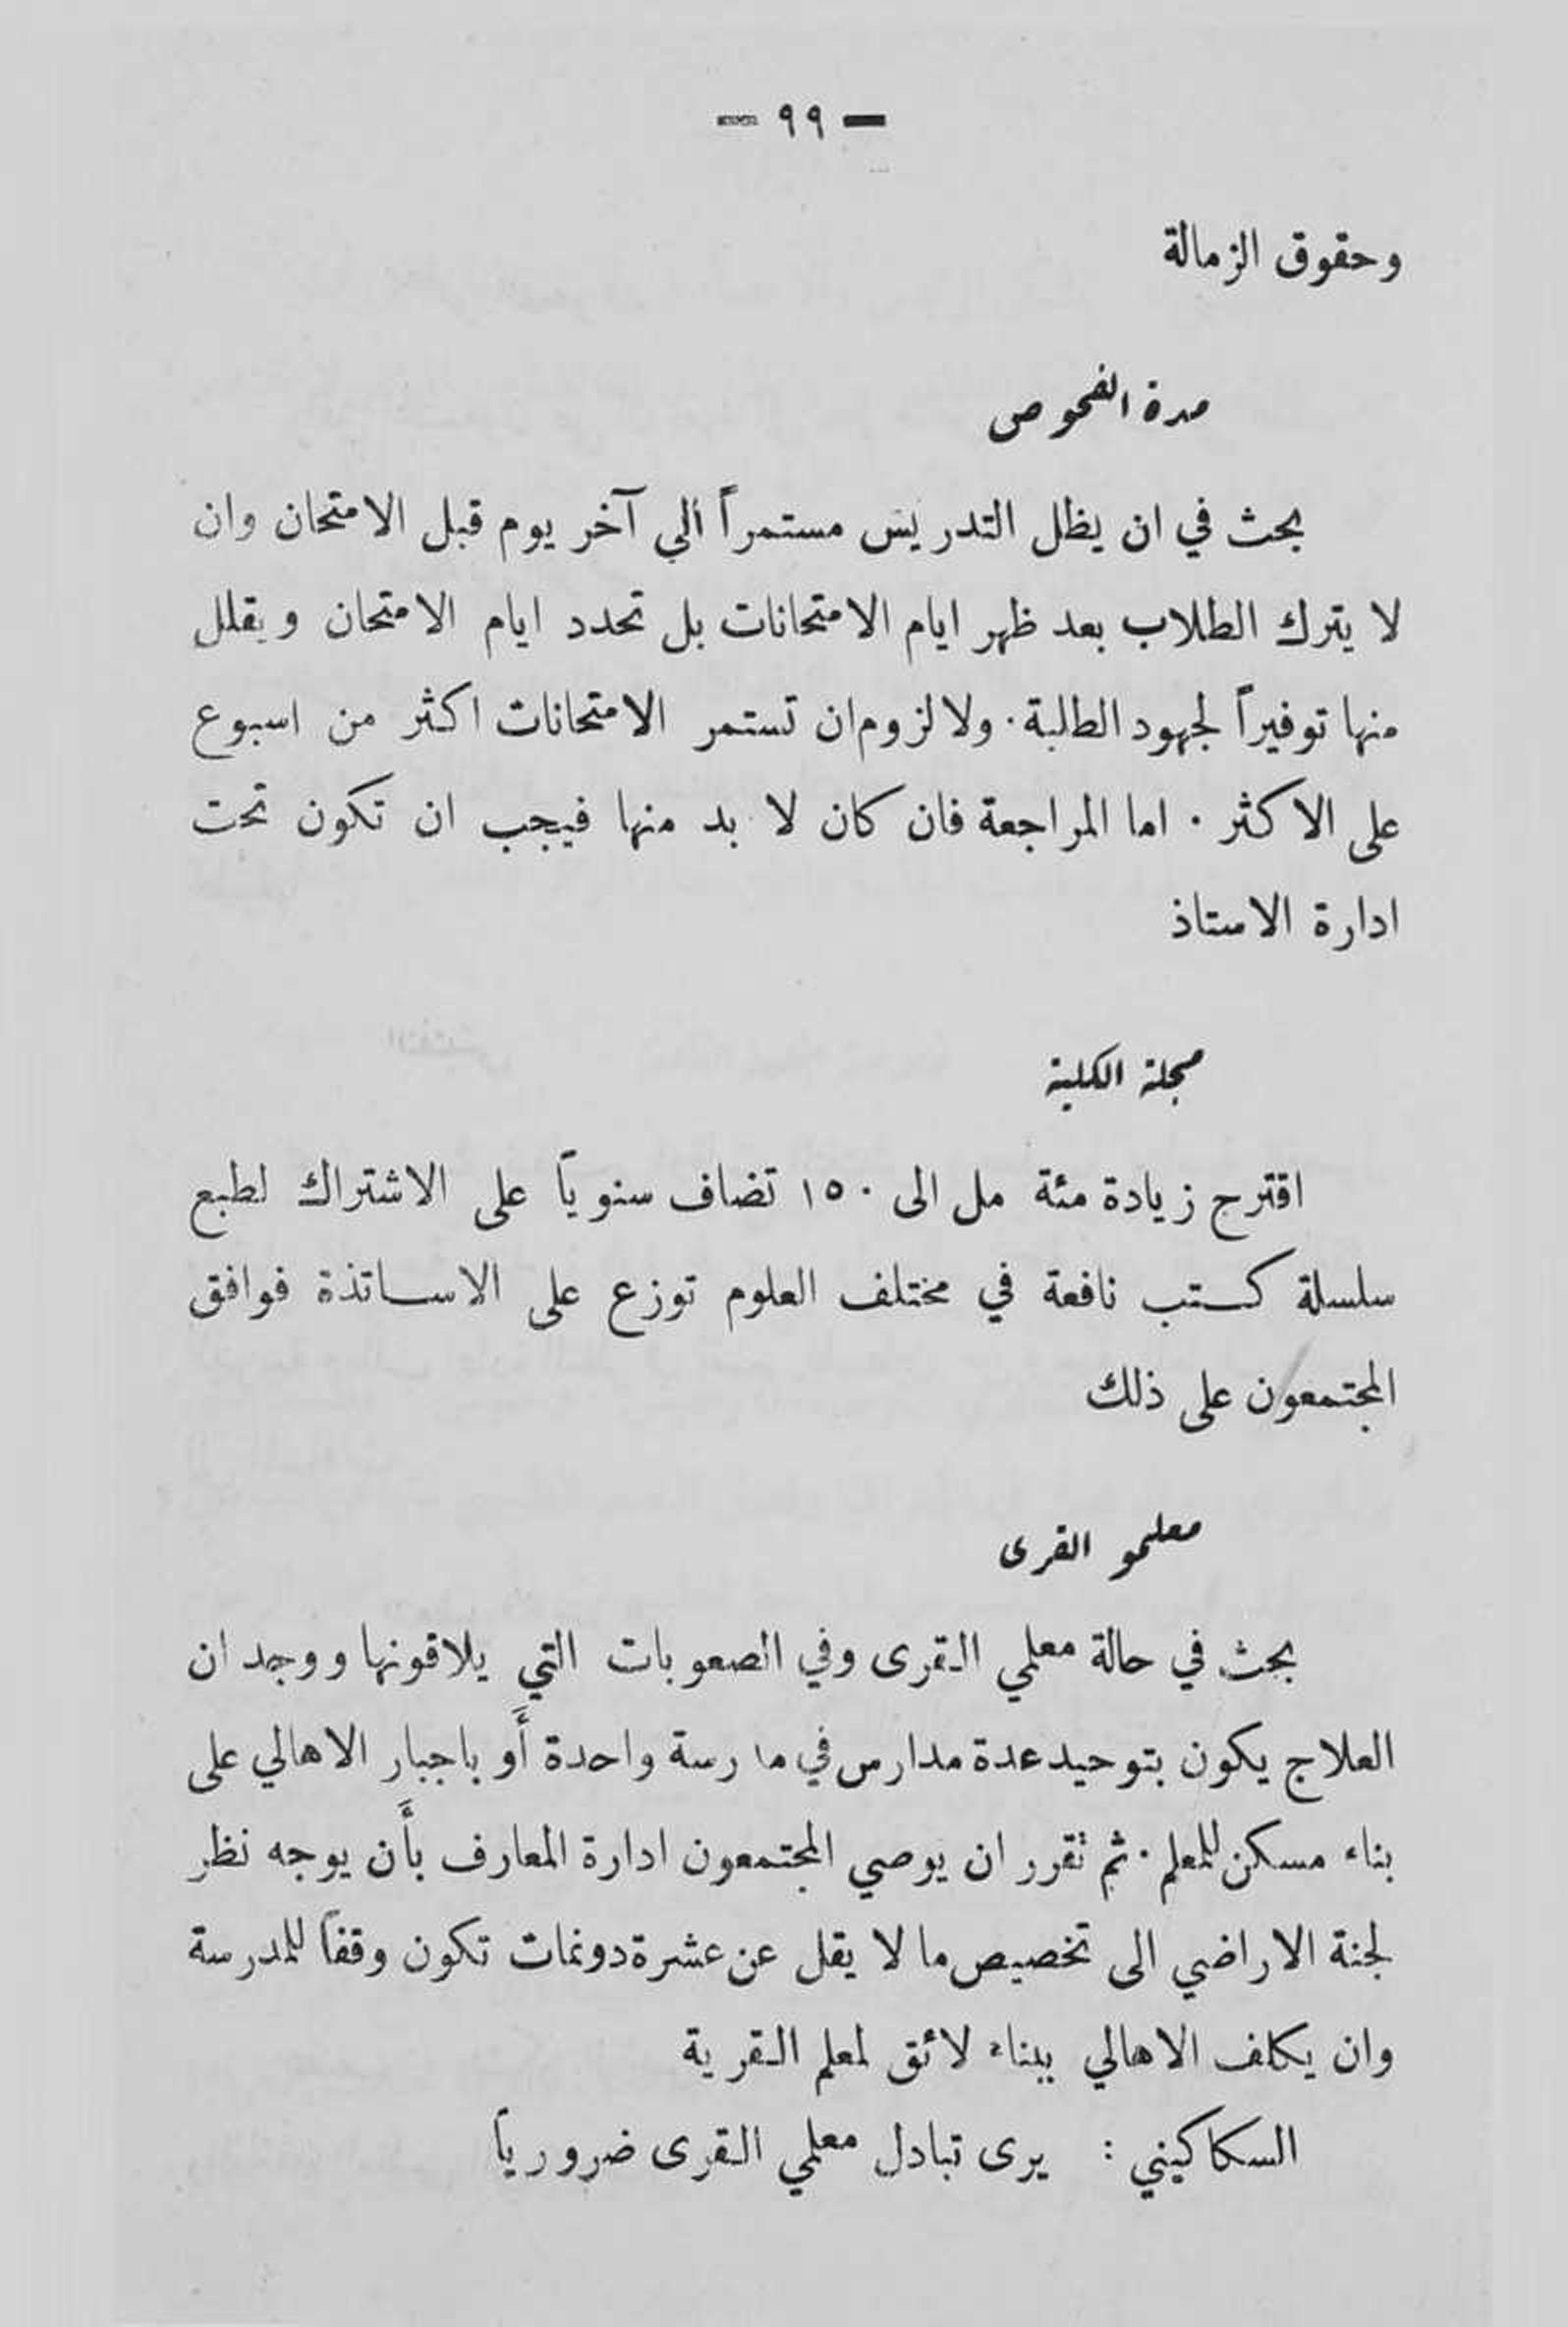 — ٩٩ —
وحقوق الزمالة
مدة الفحوص
بحث في ان يظل التدريس مستمراً الي آخر يوم قبل الامتحان وان
لا يترك الطلاب بعد ظهر ايام الامتحانات بل تحدد ايام الامتحان ويقلل
منها توفيراً لجهود الطلبة. ولا لزوم ان تستمر الامتحانات اكثر من اسبوع
على الاكثر . اما المراجعة فان كان لا بد منها فيجب ان تكون تحت
ادارة الاستاذ
مجلة الكلية
اقترح زيادة مئة مل الى ١٥٠ تضاف سنوياً على الاشتراك لطبع
سلسلة كتب نافعة في مختلف العلوم توزع على الاساتذة فوافق
المجتمعون على ذلك
معلمو القرى
بحث في حالة معلمي القرى وفي الصعوبات التي يلاقونها ووجد ان
العلاج يكون بتوحيد عدة مدارس في مدرسة واحدة أو باجبار الاهالي على
بناء مسكن للمعلم. ثم تقرر ان يوصي المجتمعون ادارة المعارف بأن يوجه نظر
لجنة الاراضي الى تخصيص ما لا يقل عن عشرة دونمات تكون وقفاً للمدرسة
وان يكلف الاهالي ببناء لائق لمعلم القرية
السكاكيني : يرى تبادل معلمي القرى ضرورياً